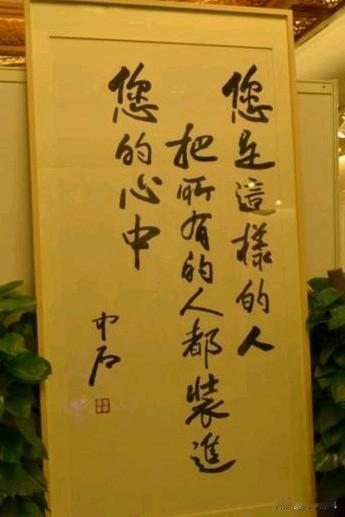 您是這樣的人
把所有的人都裝進
您的心中
中石